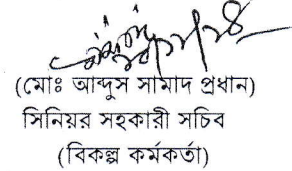 (মোঃ আব্দুস সামাদ প্রধান)
সিনিয়র সহকারী সচিব
(বিকল্প কর্মকর্তা)